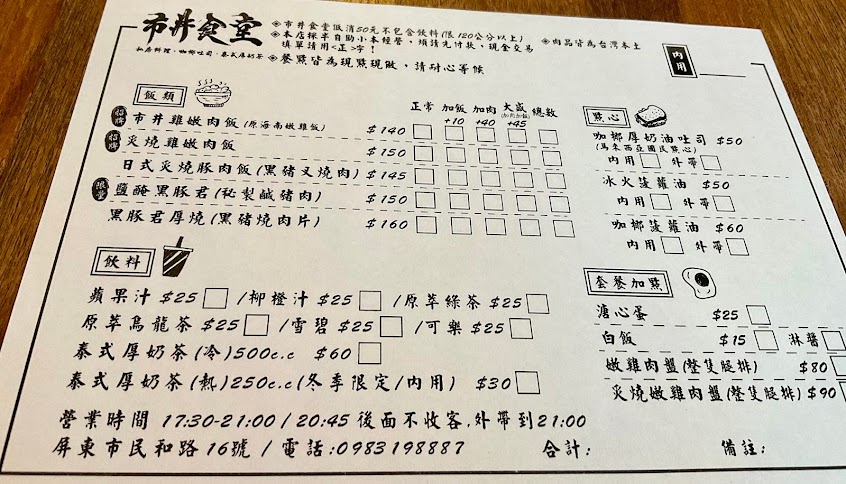 市井食堂
私房料理·咖椰吐司·泰式厚奶茶
◈市井食堂低消50元不包含飲料(限120公分以上)
◈本店採半自助小本經營,煩請先付款,現金交易
填單請用<正>字!
◈肉品皆為台灣本土
◈餐點皆為現點現做,請耐心等候
內用
飯類
正常 加飯+10 加肉+40 大盛(加肉加飯)+45 總數
招牌 市井雞嫩肉飯(原海南嫩雞飯) $140
招牌 炙燒雞嫩肉飯 $150
日式炙燒豚肉飯(黑豬叉燒肉) $145
限量 鹽醃黑豚君(秘製鹹豬肉) $150
黑豚君厚燒(黑豬燒肉片) $160
飲料
蘋果汁 $25 /柳橙汁 $25 /原萃綠茶 $25
原萃烏龍茶 $25 /雪碧 $25 /可樂 $25
泰式厚奶茶(冷)500c.c $60
泰式厚奶茶(熱)250c.c(冬季限定/內用) $30
點心
咖椰厚奶油吐司 $50
(馬來西亞國民點心)
內用 外帶
冰火菠蘿油 $50
內用 外帶
咖椰菠蘿油 $60
內用 外帶
套餐加點
溏心蛋 $25
白飯 $15 淋醬
嫩雞肉盤(整隻腿排) $80
炙燒嫩雞肉盤(整隻腿排) $90
營業時間 17:30-21:00/20:45後面不收客.外帶到21:00
屏東市民和路16號 / 電話:0983198887 合計: 備註: